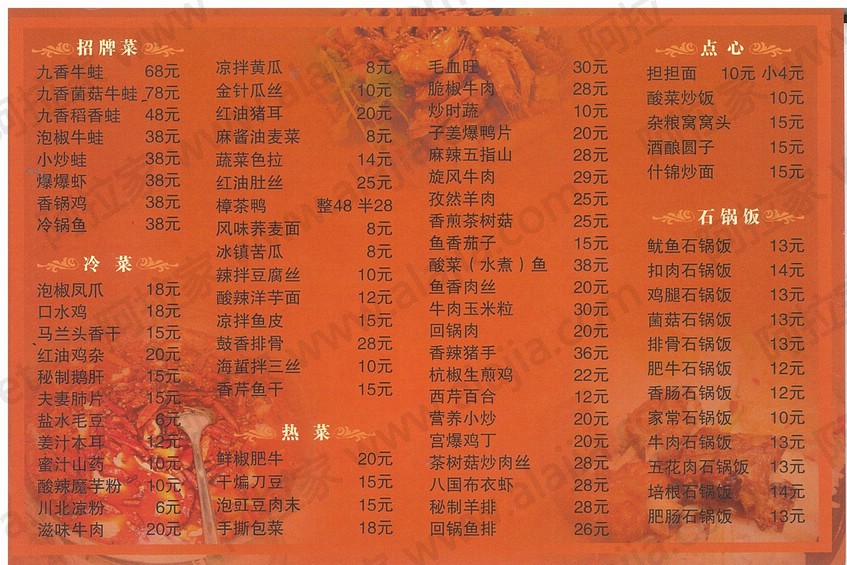 招牌菜
九香牛蛙 68元
九香菌菇牛蛙 78元
九香稻香蛙 48元
泡椒牛蛙 38元
小炒蛙 38元
爆爆虾 38元
香锅鸡 38元
冷锅鱼 38元
冷菜
泡椒凤爪 18元
口水鸡 18元
马兰头香干 15元
红油鸡杂 20元
秘制鹅肝 15元
夫妻肺片 15元
盐水毛豆 6元
姜汁木耳 12元
蜜汁山药 10元
酸辣魔芋粉 10元
川北凉粉 6元
滋味牛肉 20元
凉拌黄瓜 8元
金针瓜丝 10元
红油猪耳 20元
麻酱油麦菜 8元
蔬菜色拉 14元
红油肚丝 25元
樟茶鸭 整48 半28
风味荞麦面 8元
冰镇苦瓜 8元
辣拌豆腐丝 10元
酸辣洋芋面 12元
凉拌鱼皮 15元
鼓香排骨 28元
海蜇拌三丝 10元
香芹鱼干 15元
热菜
鲜椒肥牛 20元
干煸刀豆 15元
泡豇豆肉末 15元
手撕包菜 18元
毛血旺 30元
脆椒牛肉 28元
炒时蔬 10元
子姜爆鸭片 20元
麻辣五指山 28元
旋风牛肉 29元
孜然羊肉 25元
香煎茶树菇 25元
鱼香茄子 15元
酸菜（水煮）鱼 38元
鱼香肉丝 20元
牛肉玉米粒 30元
回锅肉 20元
香辣猪手 36元
杭椒生煎鸡 22元
西芹百合 12元
营养小炒 20元
宫爆鸡丁 20元
茶树菇炒肉丝 28元
八国布衣虾 28元
秘制羊排 28元
回锅鱼排 26元
点心
担担面 10元 小4元
酸菜炒饭 10元
杂粮窝窝头 15元
酒酿圆子 15元
什锦炒面 15元
石锅饭
鱿鱼石锅饭 13元
扣肉石锅饭 14元
鸡腿石锅饭 13元
菌菇石锅饭 13元
排骨石锅饭 13元
肥牛石锅饭 12元
香肠石锅饭 12元
家常石锅饭 10元
牛肉石锅饭 13元
五花肉石锅饭 13元
培根石锅饭 14元
肥肠石锅饭 13元